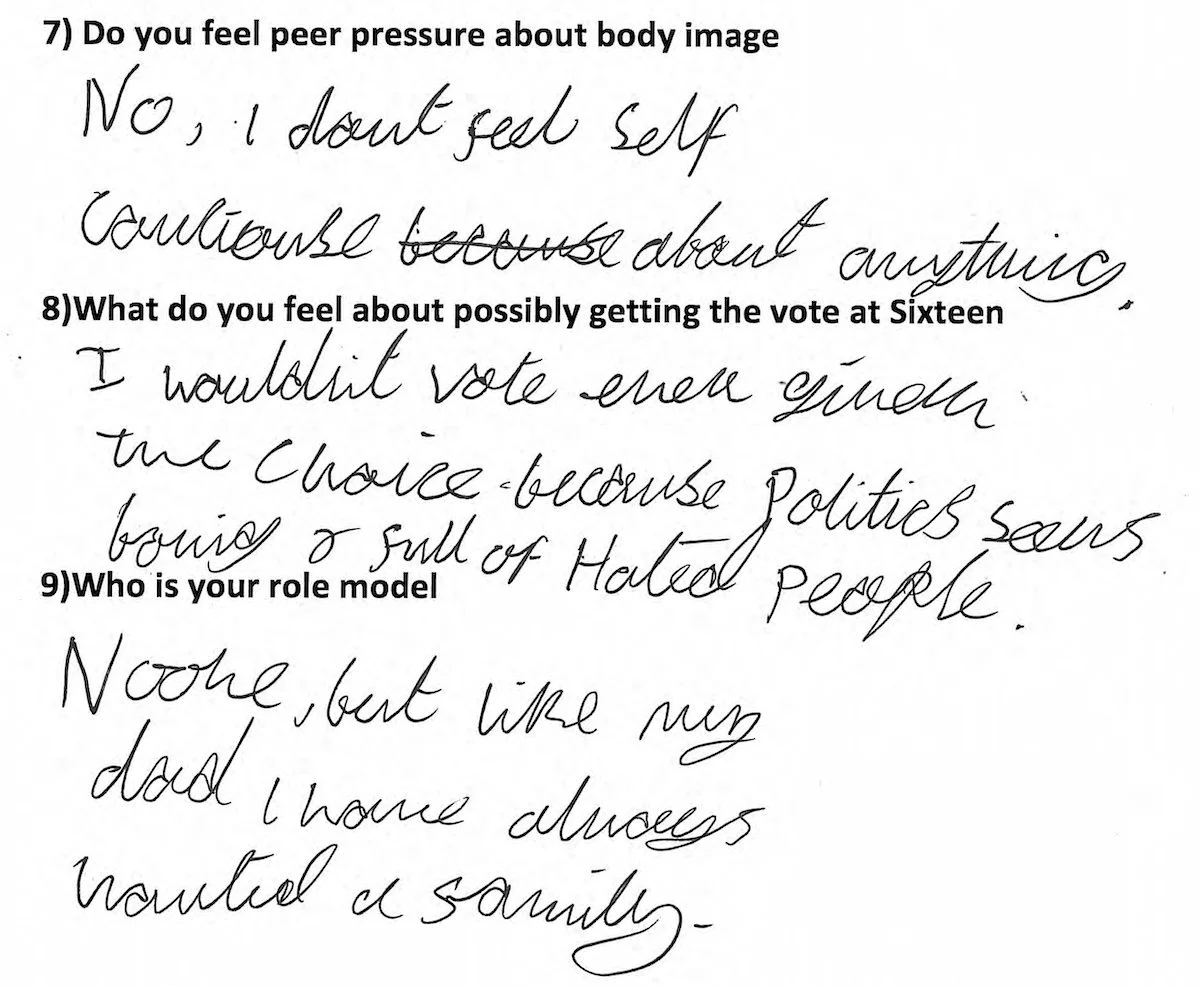 7) Do you feel peer pressure about body image
No, I dont feel self
cautiouse because about anything.
8)What do you feel about possibly getting the vote at Sixteen
I wouldnt vote even given
the choice because Politics seems
boring & full of Hated People.
9)Who is your role model
Noone, but like my
dad I have always
wanted a family.